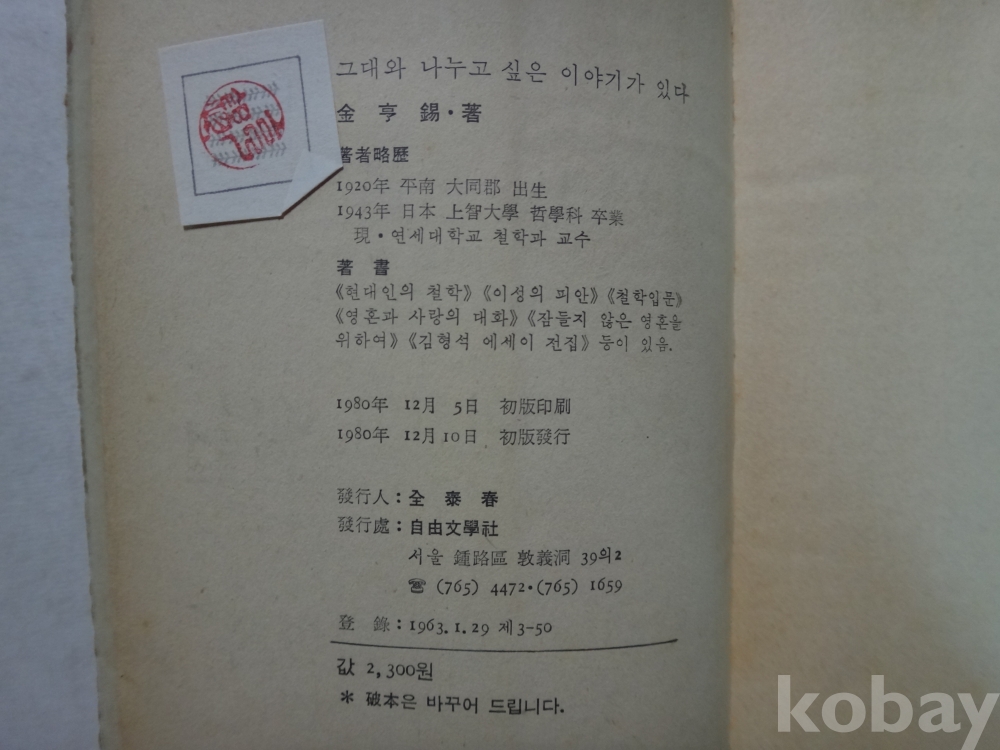 그대와 나누고 싶은 이야기가 있다
金 亨 錫·著
著者略歷
1920年 平南 大同郡 出生
1943年 日本 上智大學 哲學科 卒業
現·연세대학교 철학과 교수
著 書
《현대인의 철학》《이성의 피안》《철학입문》
《영혼과 사랑의 대화》《잠들지 않은 영혼을
위하여》《김형석 에세이 전집》등이 있음.
1980年 12月 5日 初版印刷
1980年 12月 10日 初版發行
發行人: 全 泰 春
發行處: 自由文學社
서울 鍾路區 敦義洞 39의2
☎ (765) 4472·(765) 1659
登 錄: 1963.1.29 제3-50
값 2,300원
* 破本은 바꾸어 드립니다.
kobay